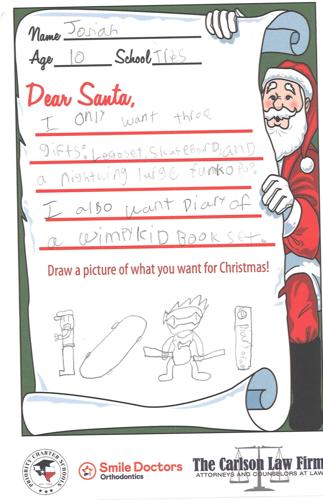 Name Josiah
Age 10 School
Dear Santa,
I only want three
gifts: Legoset, skateboard, and
a nightwing large funko Pop.
I also want Diary of
a wimpy kid Book set.
Draw a picture of what you want for Christmas!
PRIORITY CHARTER SCHOOLS
Smile Doctors
Orthodontics
The Carlson Law Firm
ATTORNEYS AND COUNSELORS AT LAW